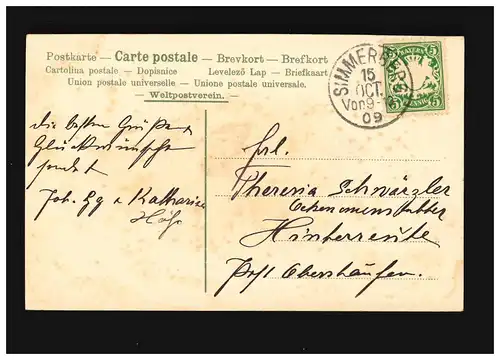 Postkarte — Carte postale — Brevkort — Brefkort
Cartolina postale — Dopisnice Levelező Lap — Briefkaart
Union postale universelle — Unione postale universale.
— Weltpostverein. —
SIMMERBERG
15
OCT.
Vor 9-
09
BAYERN
5 5
PFENNIG
die besten Grüße &
Glückwünsche
sendet
Joh. Gg & Katharina
Frl.
Theresia Schwärzler
Hinterreute
Post Oberstaufen.